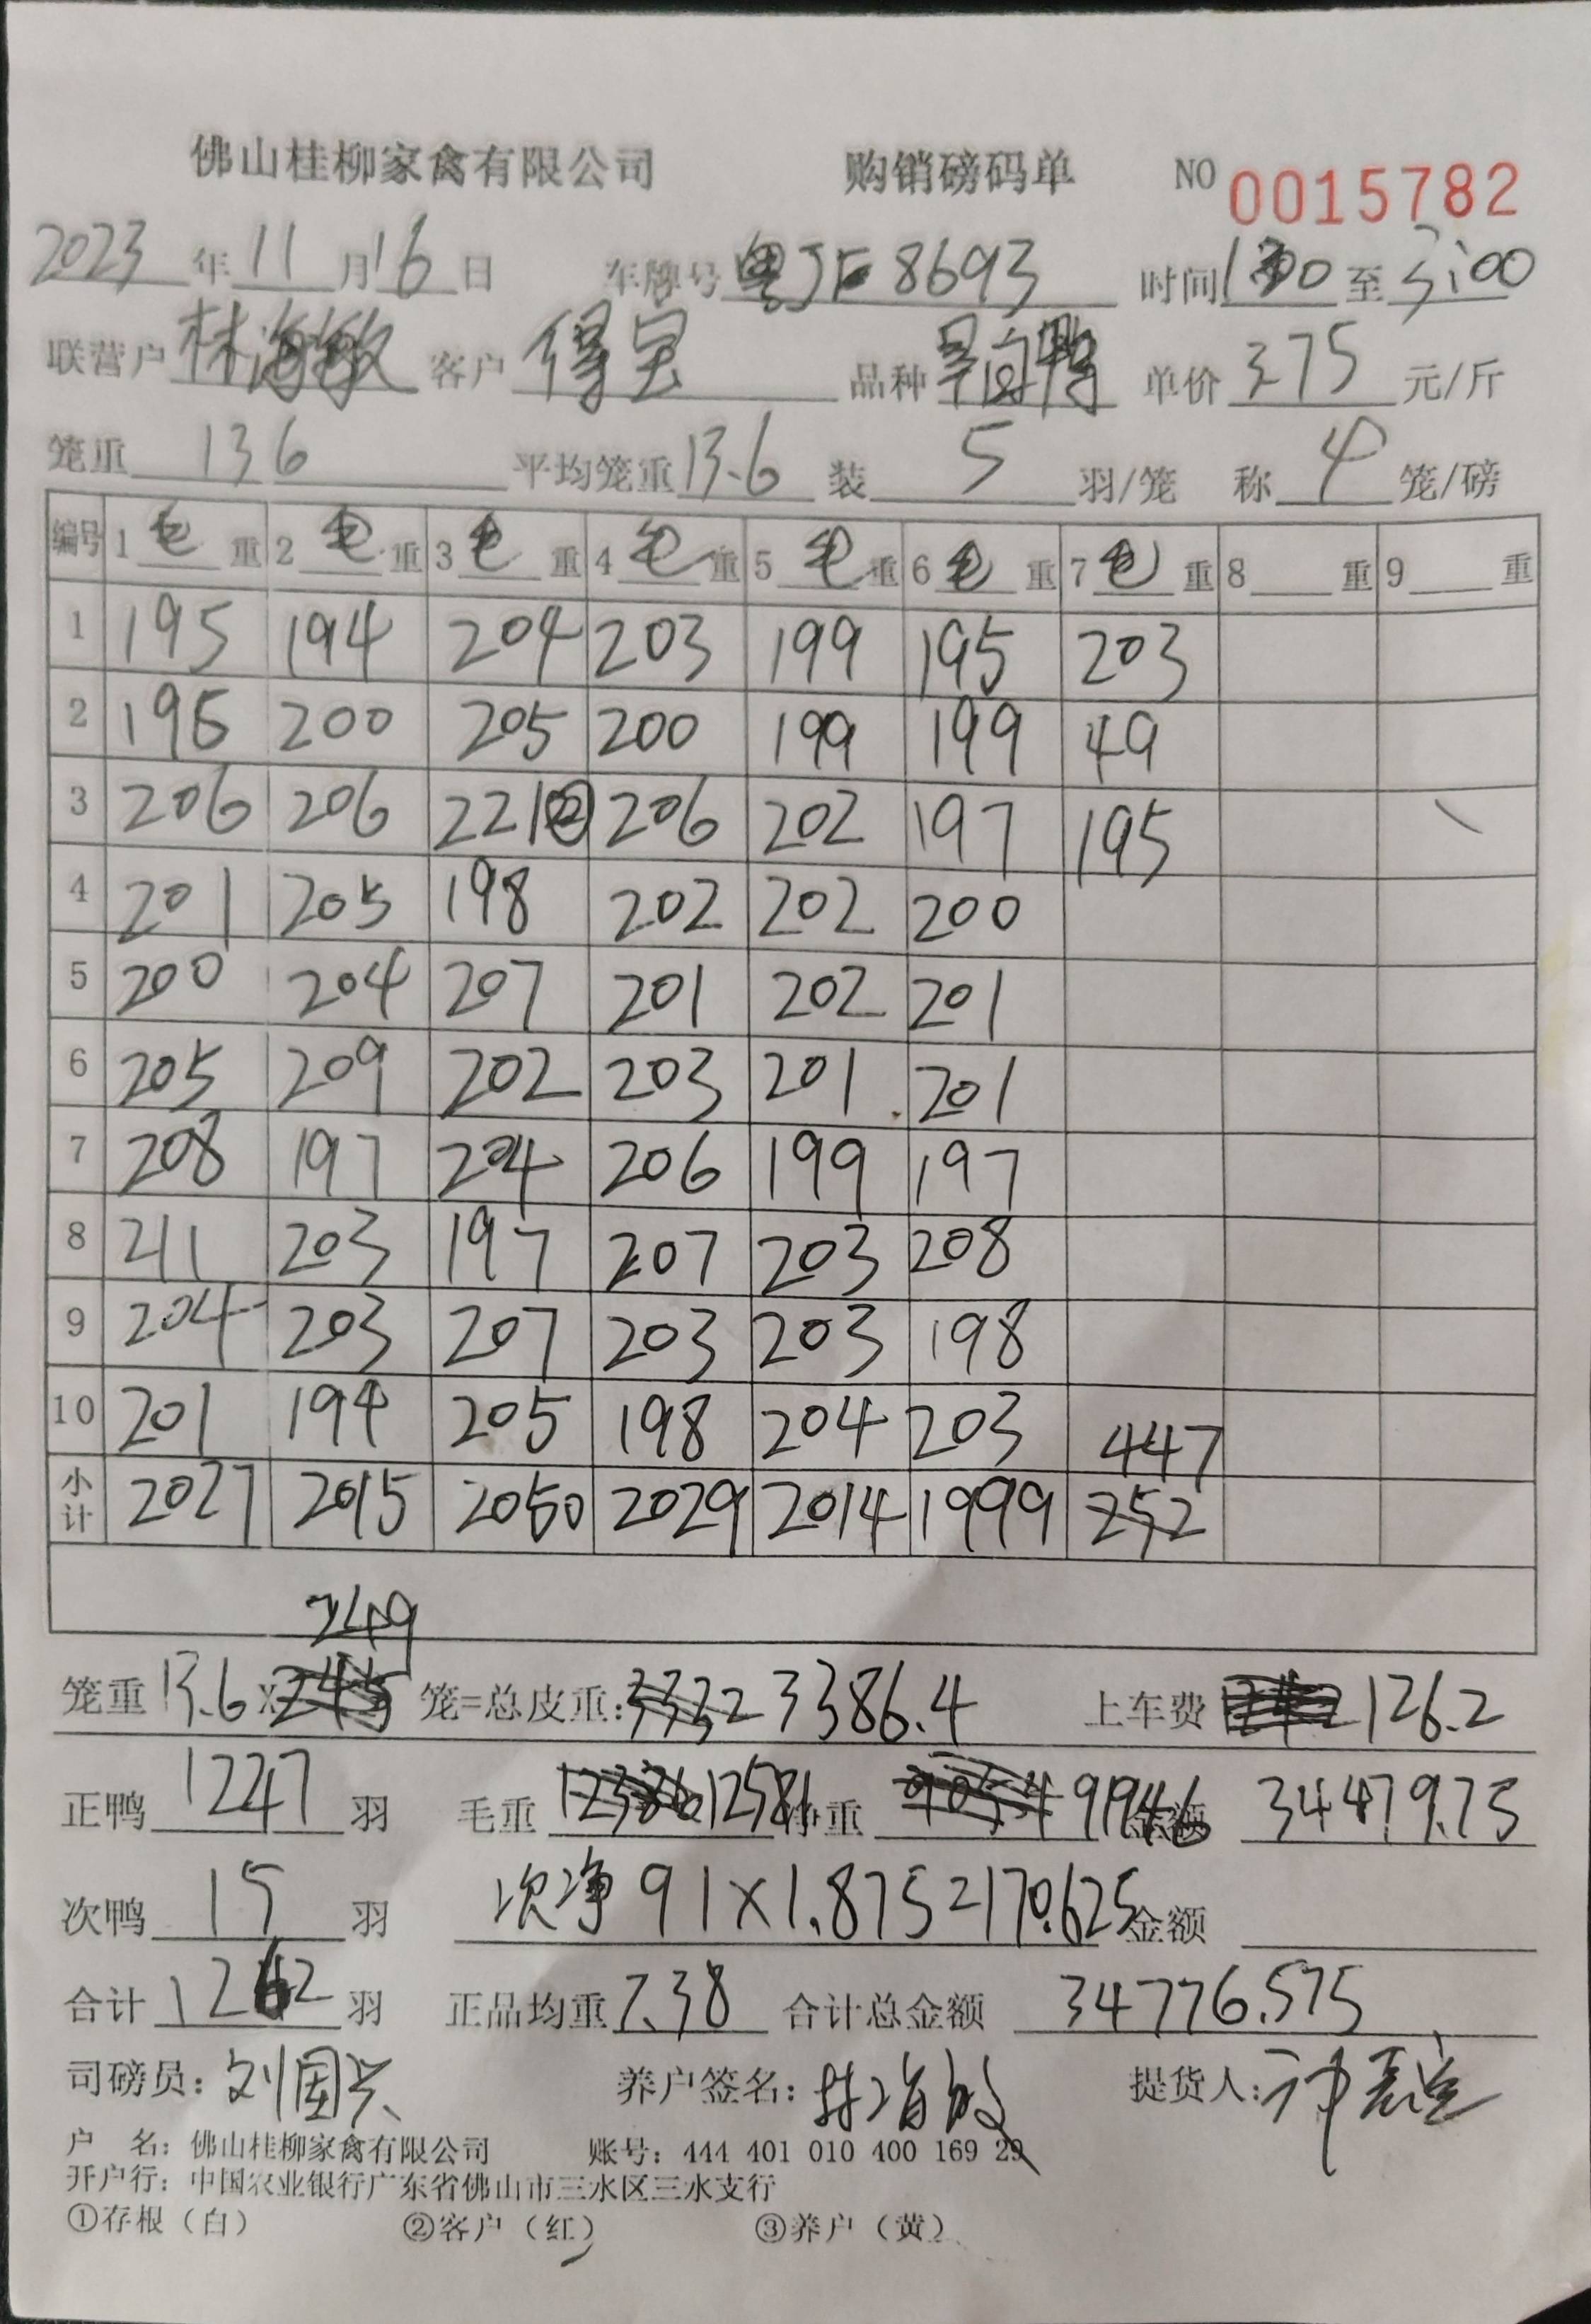 佛山桂柳家禽有限公司 购销磅码单 NO 0015782
2023年11月16日 车牌号粤JF8693 时间1:30至3:00
联营户林海敏 客户得宝 品种 单价3.75元/斤
笼重136 平均笼重13.6 装5羽/笼 称4笼/磅
编号 1毛重 2毛重 3毛重 4毛重 5毛重 6毛重 7毛重 8重 9重
1 195 194 204 203 199 195 203
2 196 200 205 200 199 199 49
3 206 206 221㉒ 206 202 197 195
4 201 205 198 202 202 200
5 200 204 207 201 202 201
6 205 209 202 203 201 201
7 208 197 204 206 199 197
8 211 203 197 207 203 208
9 204 203 207 203 203 198
10 201 194 205 198 204 203 447
小计 2027 2015 2050 2029 2014 1999 252
249
笼重13.6×245笼=总皮重:3332 3386.4 上车费126.2
正鸭1247羽 毛重12581 净重9194.6 金额34479.75
次鸭15羽 次净91×1.875=170.625 金额
合计1262羽 正品均重7.38 合计总金额34776.575
司磅员:刘国兴 养户签名:林海敏 提货人:
户 名:佛山桂柳家禽有限公司 账号:444 401 010 400 169 29
开户行:中国农业银行广东省佛山市三水区三水支行
①存根(白) ②客户(红) ③养户(黄)